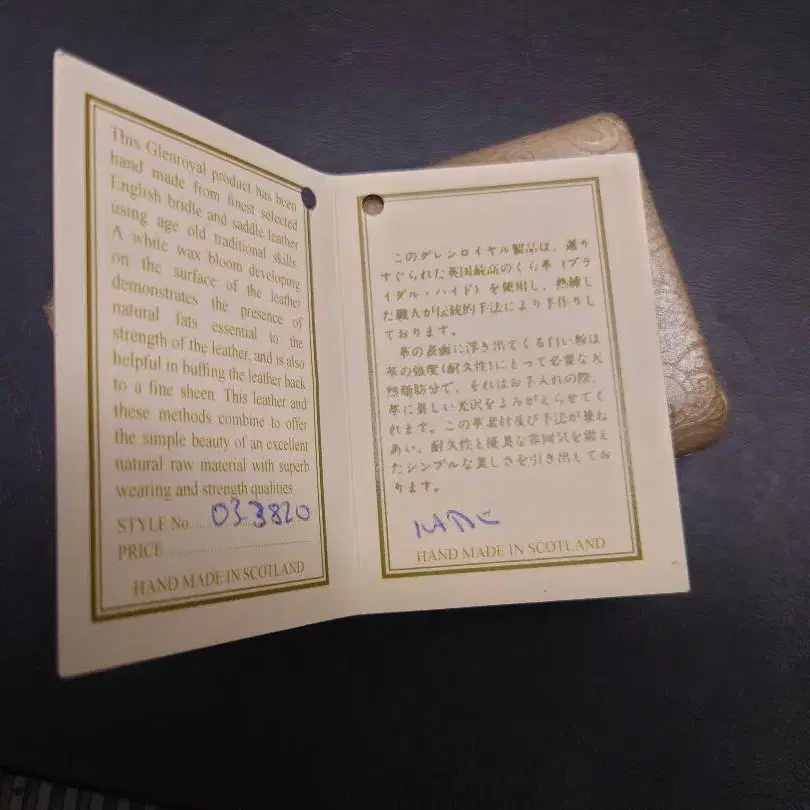 This Glenroyal product has been
hand made from finest selected
English bridle and saddle leather
using age old traditional skills.
A white wax bloom developing
on the surface of the leather
demonstrates the presence of
natural fats essential to the
strength of the leather, and is also
helpful in buffing the leather back
to a fine sheen. This leather and
these methods combine to offer
the simple beauty of an excellent
natural raw material with superb
wearing and strength qualities
STYLE No. 033820
PRICE
HAND MADE IN SCOTLAND
このグレンロイヤル製品は、選り
すぐられた英国最高のくら革（ブラ
イダル・ハイド）を使用し、熟練し
た職人が伝統的手法により手作りし
ております。
革の表面に浮き出てくる白い粉は
革の強度(耐久性)にとって必要な天
然脂肪分で、それはお手入れの際、
革に美しい光沢をよみがえらせてく
れます。この革素材及び手法が兼ね
あい、耐久性と優美な雰囲気を備え
たシンプルな美しさを引き出してお
ります。
HAND MADE IN SCOTLAND